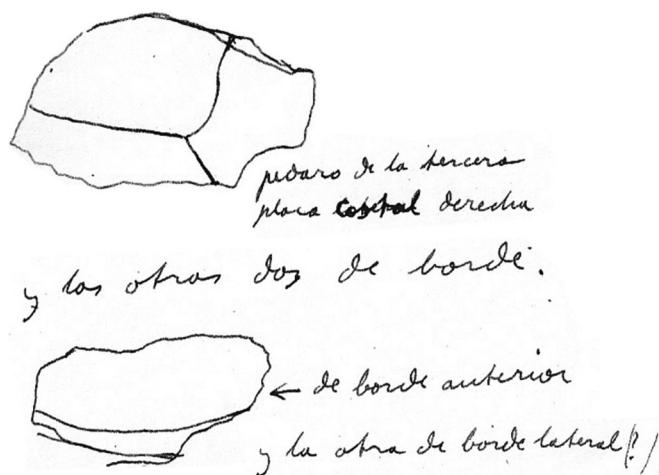 pedazo de la tercera
placa costal derecha
y las otras dos de borde.
← de borde anterior
y la otra de borde lateral (?)